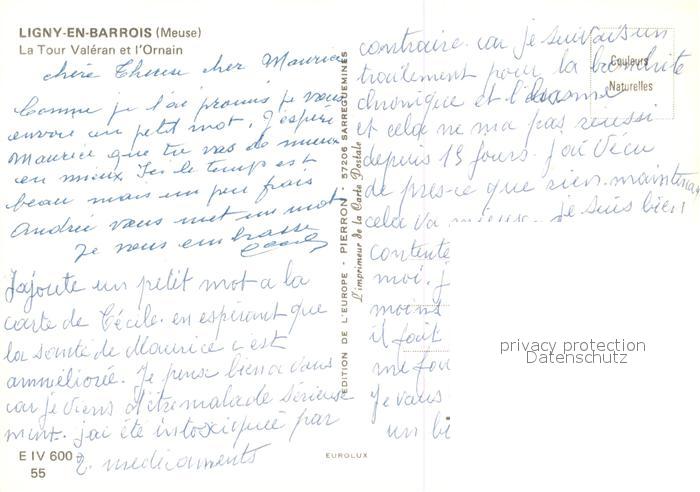 LIGNY-EN-BARROIS (Meuse)
La Tour Valéran et l'Ornain
chère Therese cher Maurice
Comme je l'ai promis je vous
envoie un petit mot. J'espère
Maurice que tu vas de mieux
en mieux Ici le temps est
beau mais un peu frais
Andrée vous met un mot
Je vous embrasse
Cécile
J'ajoute un petit mot a la
carte de Cécile. en espérant que
la santé de Maurice c'est
amméliorée. Je pense bien a vous
car je viens d'être malade sérieuse
ment. j'ai été intoxiquée par
2. medicaments
E IV 600
55
EDITION DE L'EUROPE - PIERRON - 57206 SARREGUEMINES
L'imprimeur de la Carte Postale
EUROLUX
contraire. car je suivais un
traitement pour la bronchite
chronique et l'asme
et cela ne ma pas réussi
depuis 15 jours. J'ai vécu
de presce que rien. maintenant
cela va mieux. je suis bien
contente
moi. j
moins
il fait
me
Je vais
un bi
Couleurs
Naturelles
privacy protection
Datenschutz